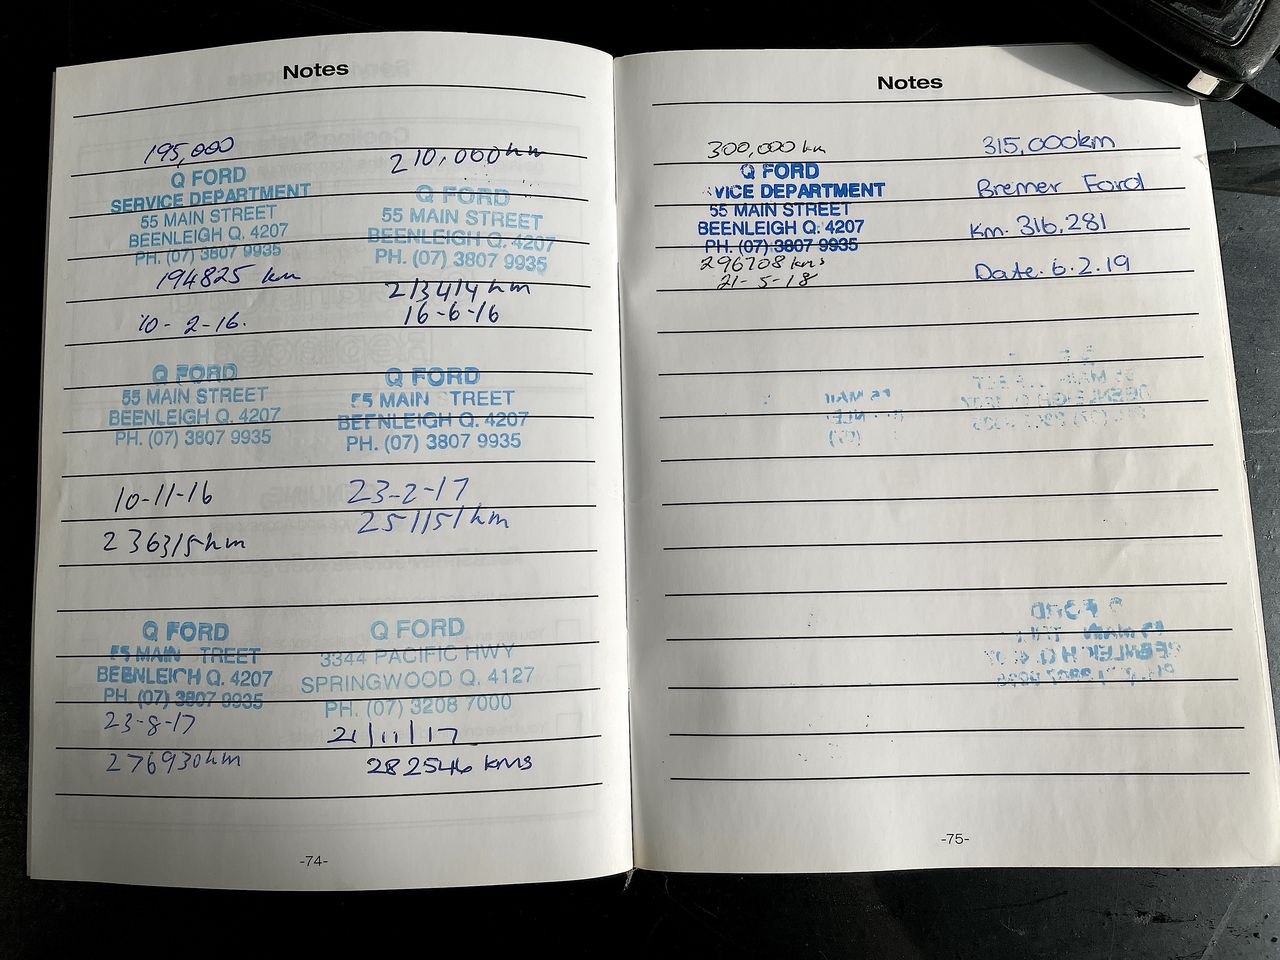 Notes
195,000
Q FORD
SERVICE DEPARTMENT
55 MAIN STREET
BEENLEIGH Q. 4207
PH. (07) 3807 9935
194825 km
10-2-16.
210,000 km
Q FORD
55 MAIN STREET
BEENLEIGH Q. 4207
PH. (07) 3807 9935
213414 km
16-6-16
Q FORD
55 MAIN STREET
BEENLEIGH Q. 4207
PH. (07) 3807 9935
10-11-16
236315 km
Q FORD
55 MAIN STREET
BEENLEIGH Q. 4207
PH. (07) 3807 9935
23-2-17
251151 km
Q FORD
55 MAIN TREET
BEENLEIGH Q. 4207
PH. (07) 3807 9935
23-8-17
276930 km
Q FORD
3344 PACIFIC HWY
SPRINGWOOD Q. 4127
PH. (07) 3208 7000
21/11/17
282546 kms
-74-
Notes
300,000 km
Q FORD
VICE DEPARTMENT
55 MAIN STREET
BEENLEIGH Q. 4207
PH. (07) 3807 9935
296708 kms
21-5-18
315,000km
Bremer Ford
Km. 316,281
Date. 6.2.19
-75-